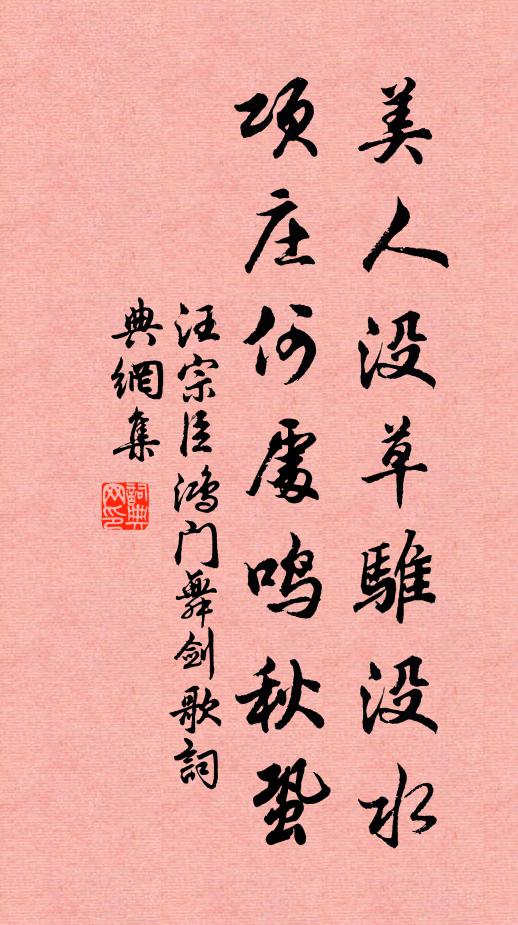 美人没草騅没水
项庄何處鳴秋蛩
汪宗臣鴻门舞剑歌詞
典網集
詞典网印